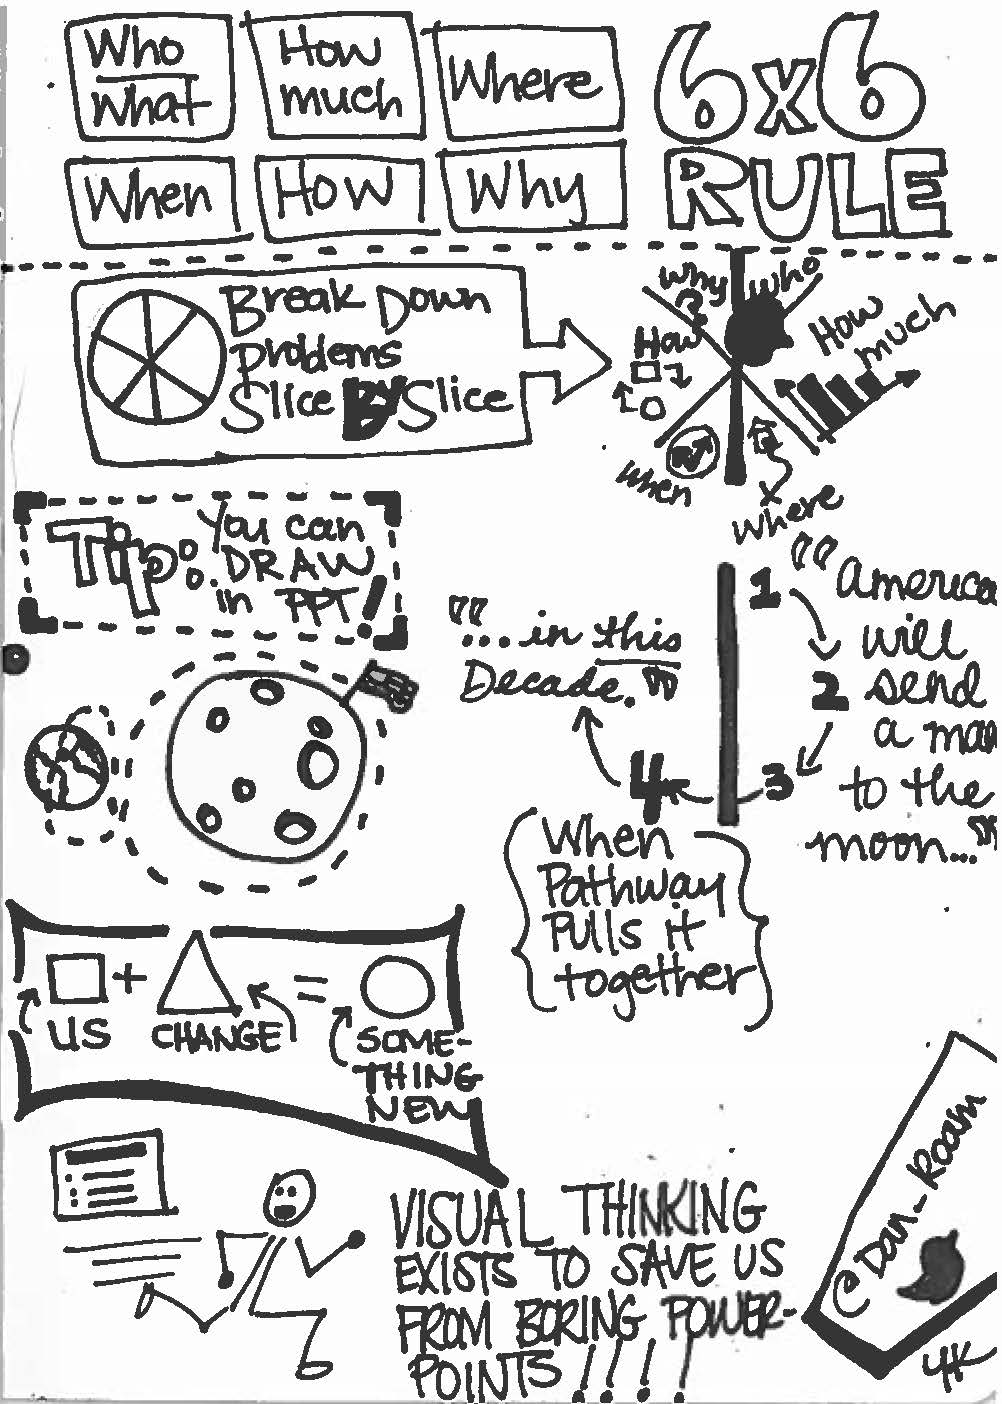 Who
What
How
much
Where
6x6
RULE
When
How
Why
Break Down
problems
Slice By Slice
Why
?
Who
How
much
How
When
Where
Tip:
You can
DRAW
in PPT!
"America
will
send
a man
to the
moon..."
1
2
3
4
"... in this
Decade."
When
Pathway
Pulls it
together
+
=
US
CHANGE
SOME-
THING
NEW
VISUAL THINKING
EXISTS TO SAVE US
FROM BORING POWER-
POINTS!!!!
@Dan_Roam